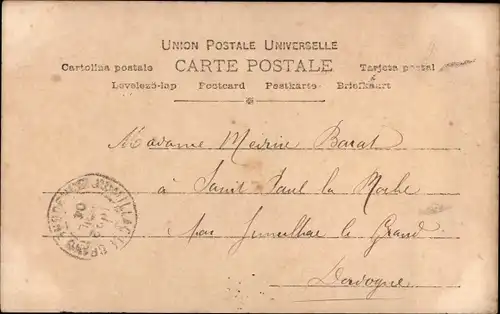 UNION POSTALE UNIVERSELLE
Cartolina postale CARTE POSTALE Tarjeta postal
Levelező-lap Postcard Postkarte Briefkaart
Madame Barat
à Saint Paul la Roche
par Jumilhac le Grand
Dordogne
JUMILHAC-LE-GRAND
04